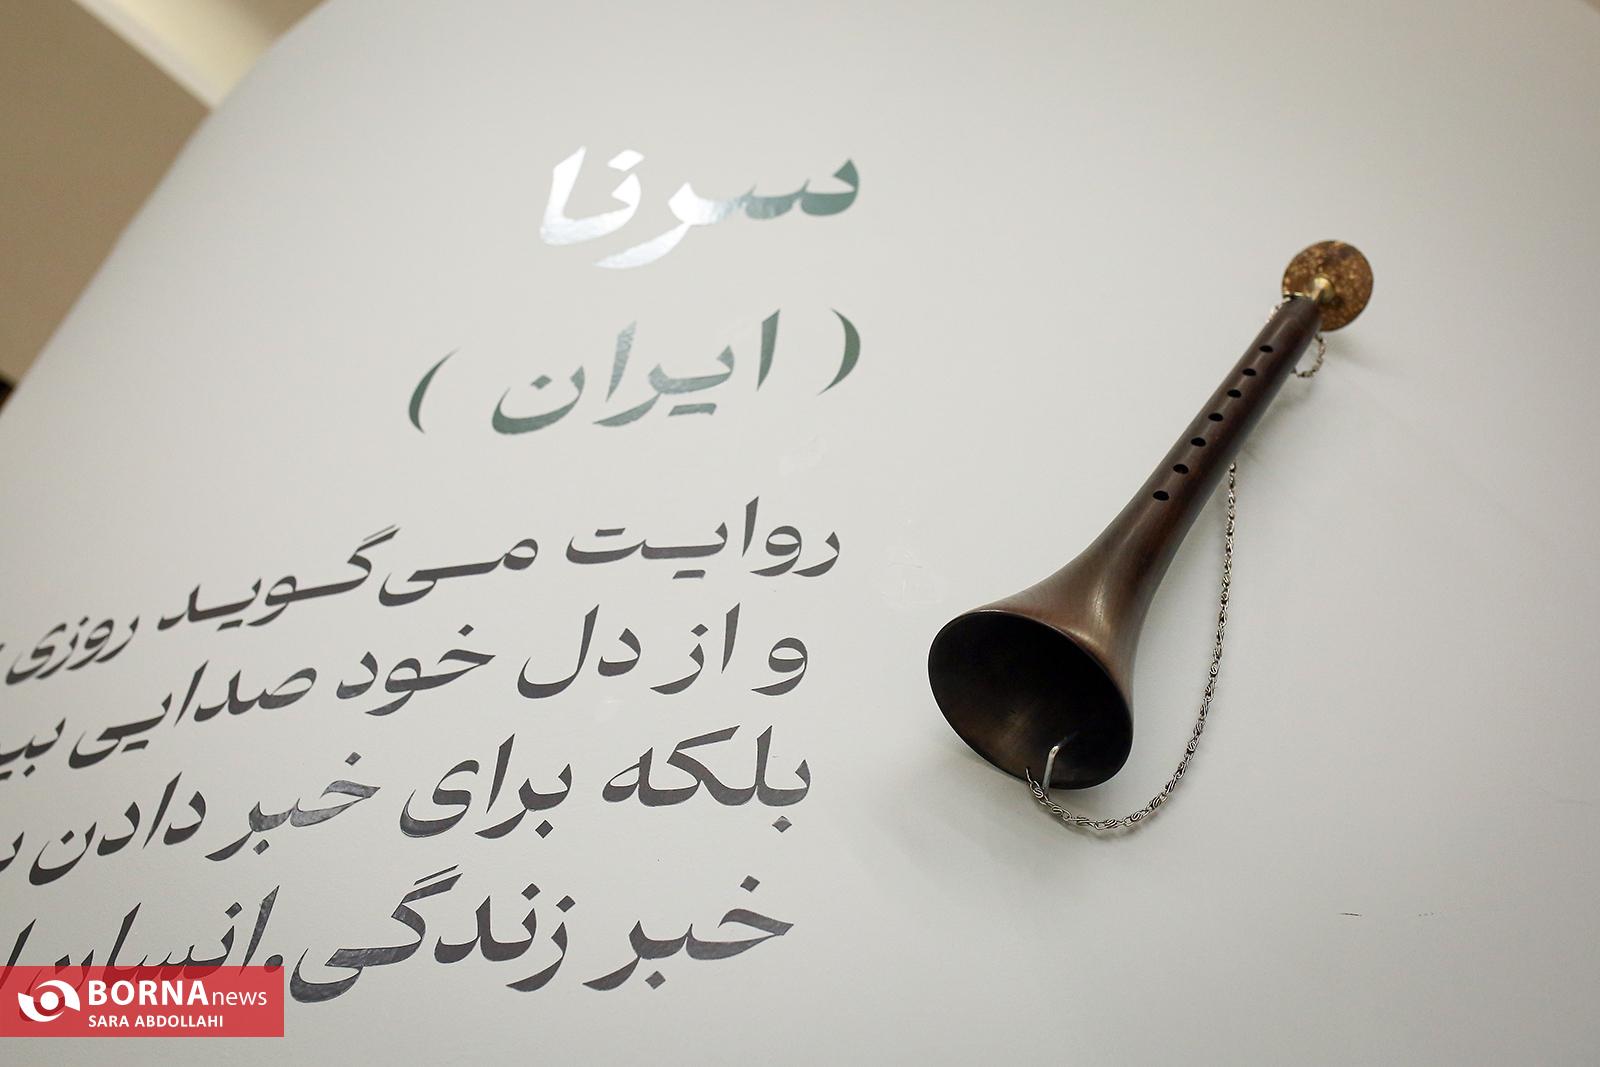 سرنا
( ایران )
روایت می‌گوید روزی
و از دل خود صدایی
بلکه برای خبر دادن
خبر زندگی. انسان
BORNA news
SARA ABDOLLAHI